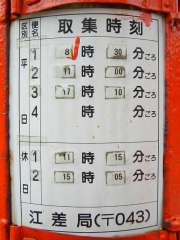 区別 便名 取集時刻
平日 1 8時30分ごろ
2 11時00分ごろ
3 17時10分ごろ
4 時 分ごろ
休日 1 11時15分ごろ
2 15時05分ごろ
江差局(〒043)